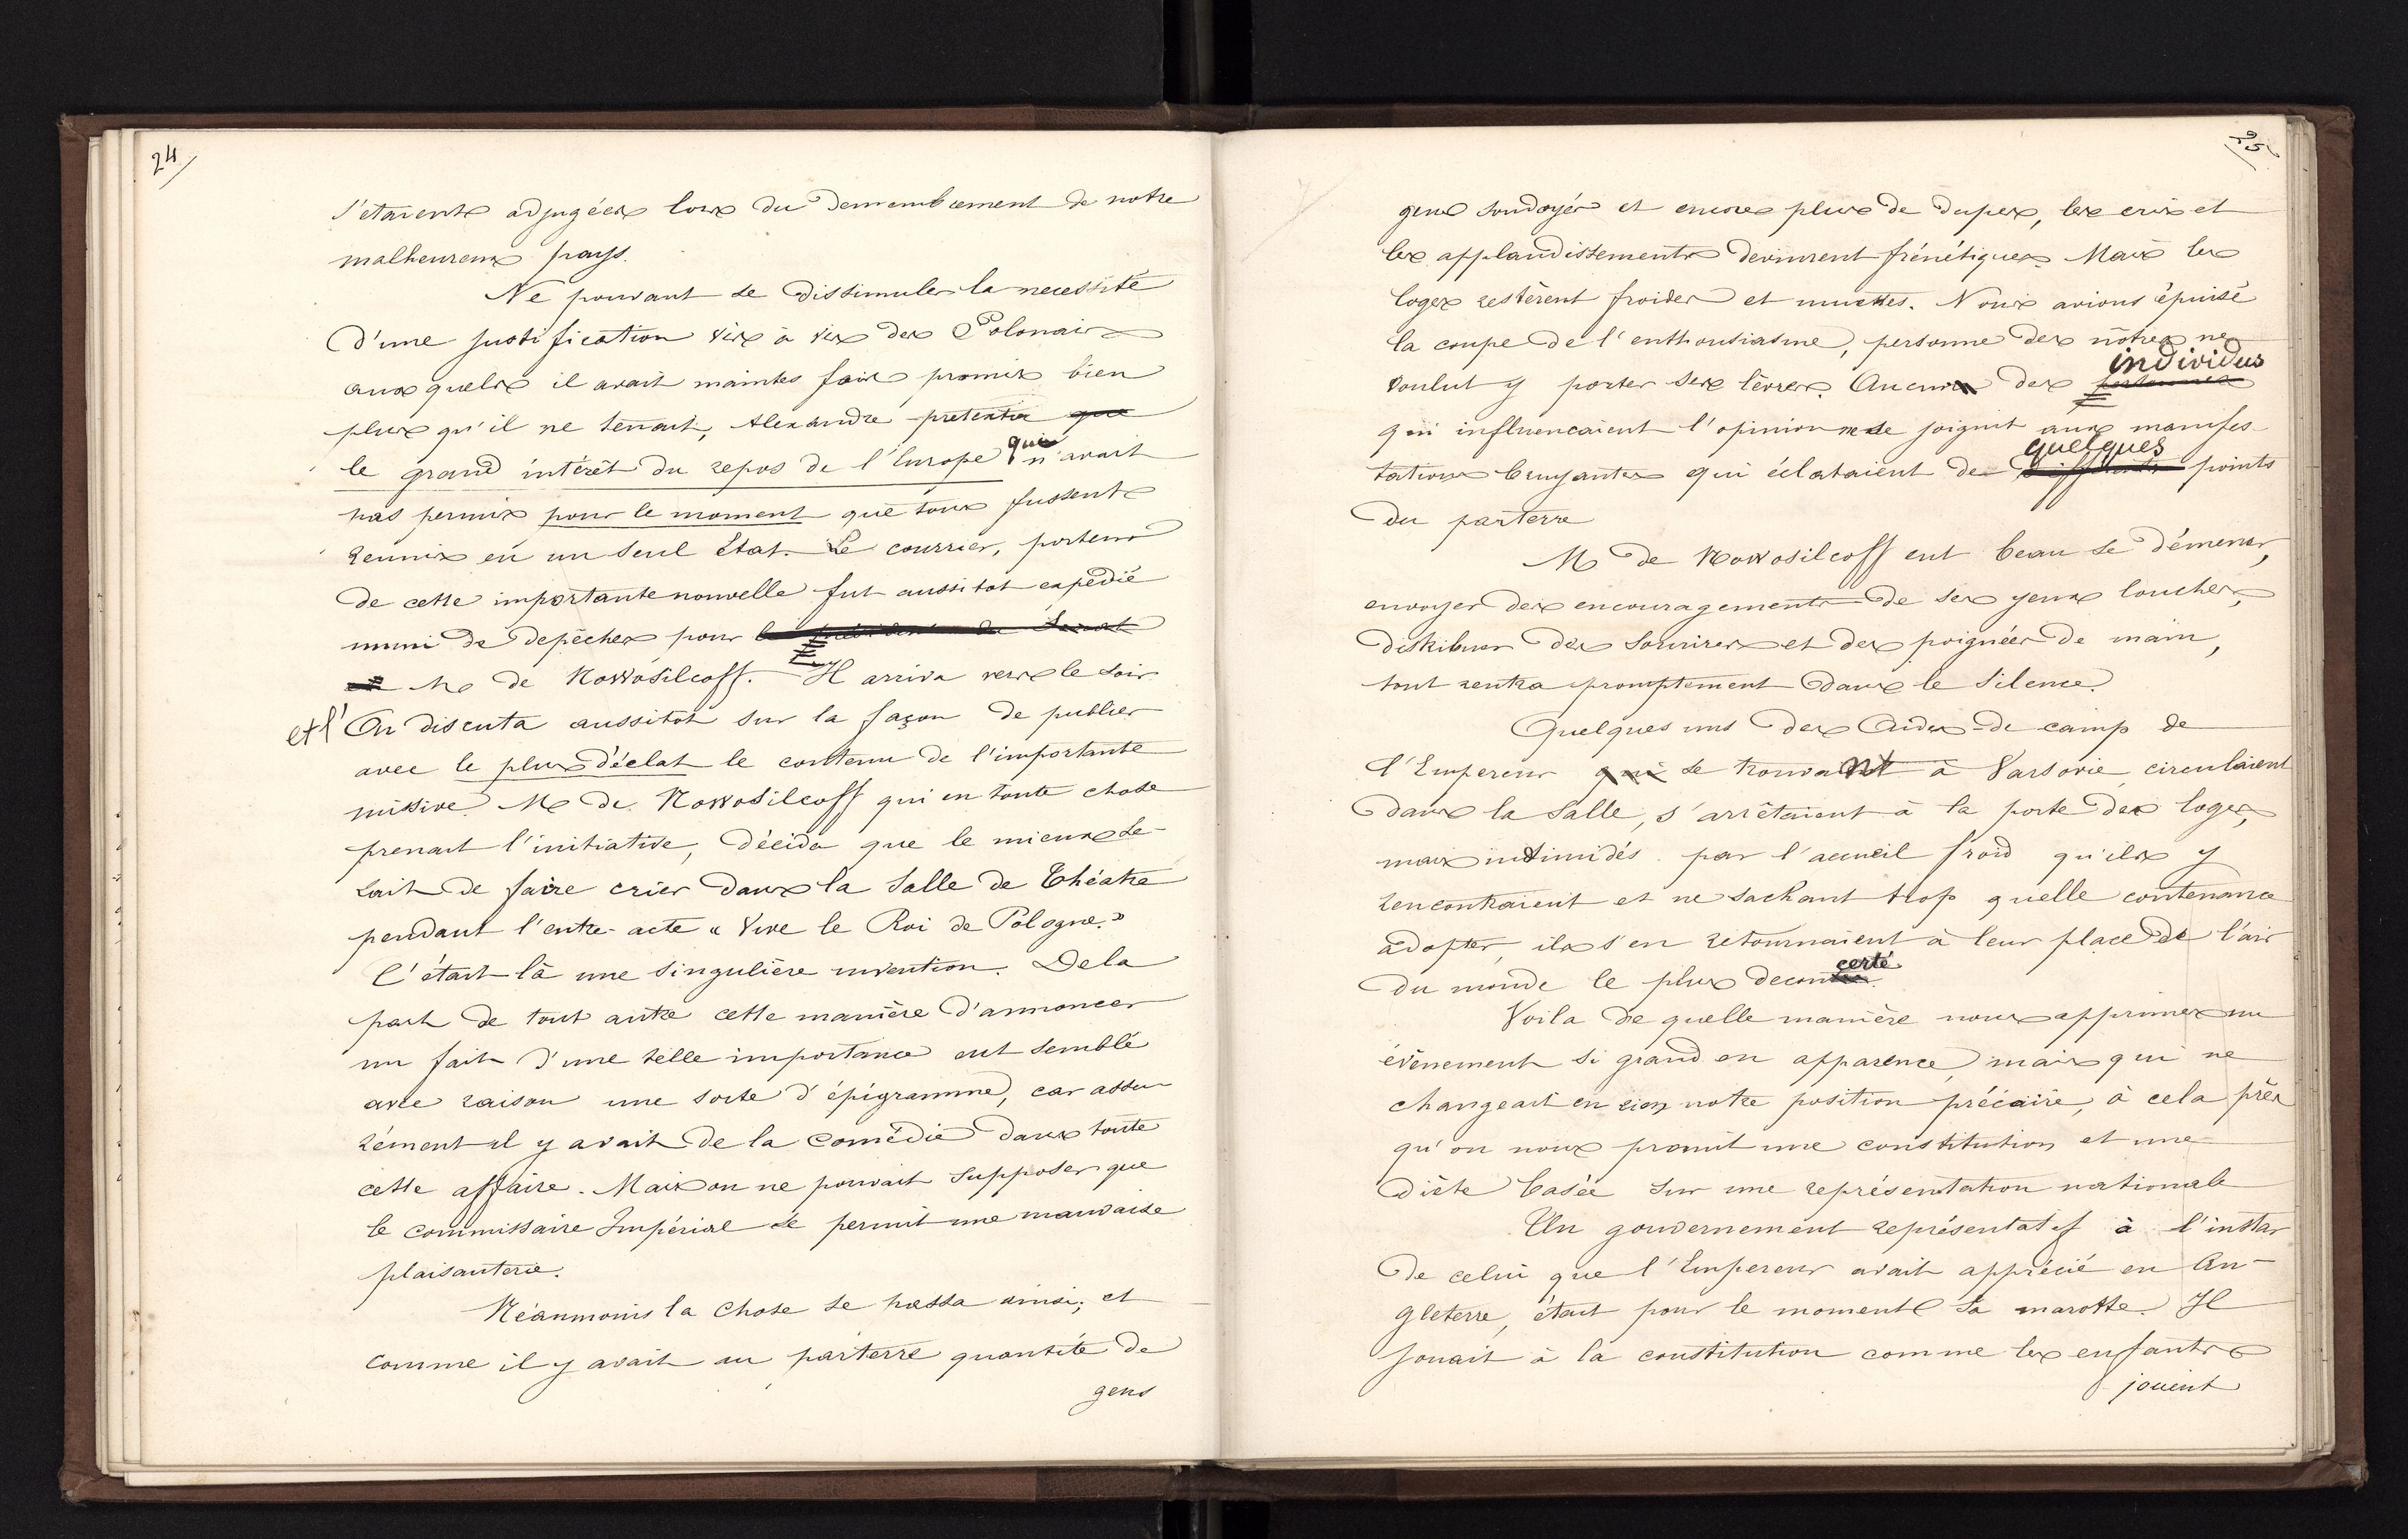 24
s'etaient adjugées lors du demembrement de notre
malheureux pays.
Ne pouvant se dissimuler la necessité
d'une justification vis à vis des Polonais
aux quels il avait maintes fois promis bien
plus qu'il ne tenait, Alexandre pretexta que
le grand intérêt du repos de l'Europe que n'avait
pas permis pour le moment que tous fussent
reunis en un seul État. Le courrier, porteur
de cette importante nouvelle fut aussitot expédié
muni de depêches pour le président du Sénat
et Mr de Nowosilcoff. Il arriva vers le soir
et l' On discuta aussitôt sur la façon de publier
avec le plus d'éclat le contenu de l'importante
missive. Mr de Nowosilcoff qui en toute chose
prenait l'initiative, décida que le mieux se-
rait de faire crier dans la Salle de Théatre
pendant l'entre-acte « Vive le Roi de Pologne.»
C'était là une singulière invention. De la
part de tout autre cette manière d'annoncer
un fait d'une telle importance eut semblé
avec raison une sorte d'épigramme, car assu-
rément il y avait de la comédie dans toute
cette affaire. Mais on ne pouvait supposer que
le commissaire Impérial se permit une mauvaise
plaisanterie.
Néanmoins la chose se passa ainsi; et
comme il y avait au parterre quantité de
gens
25
gens soudoyés et encore plus de dupes, les cris et
les applaudissements devinrent frénétiques. Mais les
loges restèrent froides et muettes. Nous avions épuisé
la coupe de l'enthousiasme, personne des nôtres ne
individus
voulut y porter ses lèvres. Aucun des personnes
qui influencaient l'opinion ne se joignit aux manifes-
quelques
tations bruyantes qui éclataient de differents points
du parterre
M de Nowosilcoff eut beau se démener,
envoyer des encouragements de ses yeux louches,
distribuer des sourires et des poignées de main,
tout rentra promptement dans le silence.
Quelques uns des Aides-de camp de
l'Empereur qui se trouvant à Varsovie circulaient
dans la salle, s'arrêtaient à la porte des loges,
mais intimidés par l'accueil froid qu'ils y
rencontraient et ne sachant trop quelle contenance
adopter, ils s'en retournaient à leur place de l'air
certé
du monde le plus decon
Voila de quelle manière nous apprimes un
évènement si grand en apparence, mais qui ne
changeait en rien notre position précaire, à cela près
qu'on nous promit une constitution et une
diète basée sur une représentation nationale
Un gouvernement représentatif à l'instar
de celui que l'Empereur avait apprécié en An-
gleterre, était pour le moment sa marotte. Il
jouait à la constitution comme les enfants
jouent